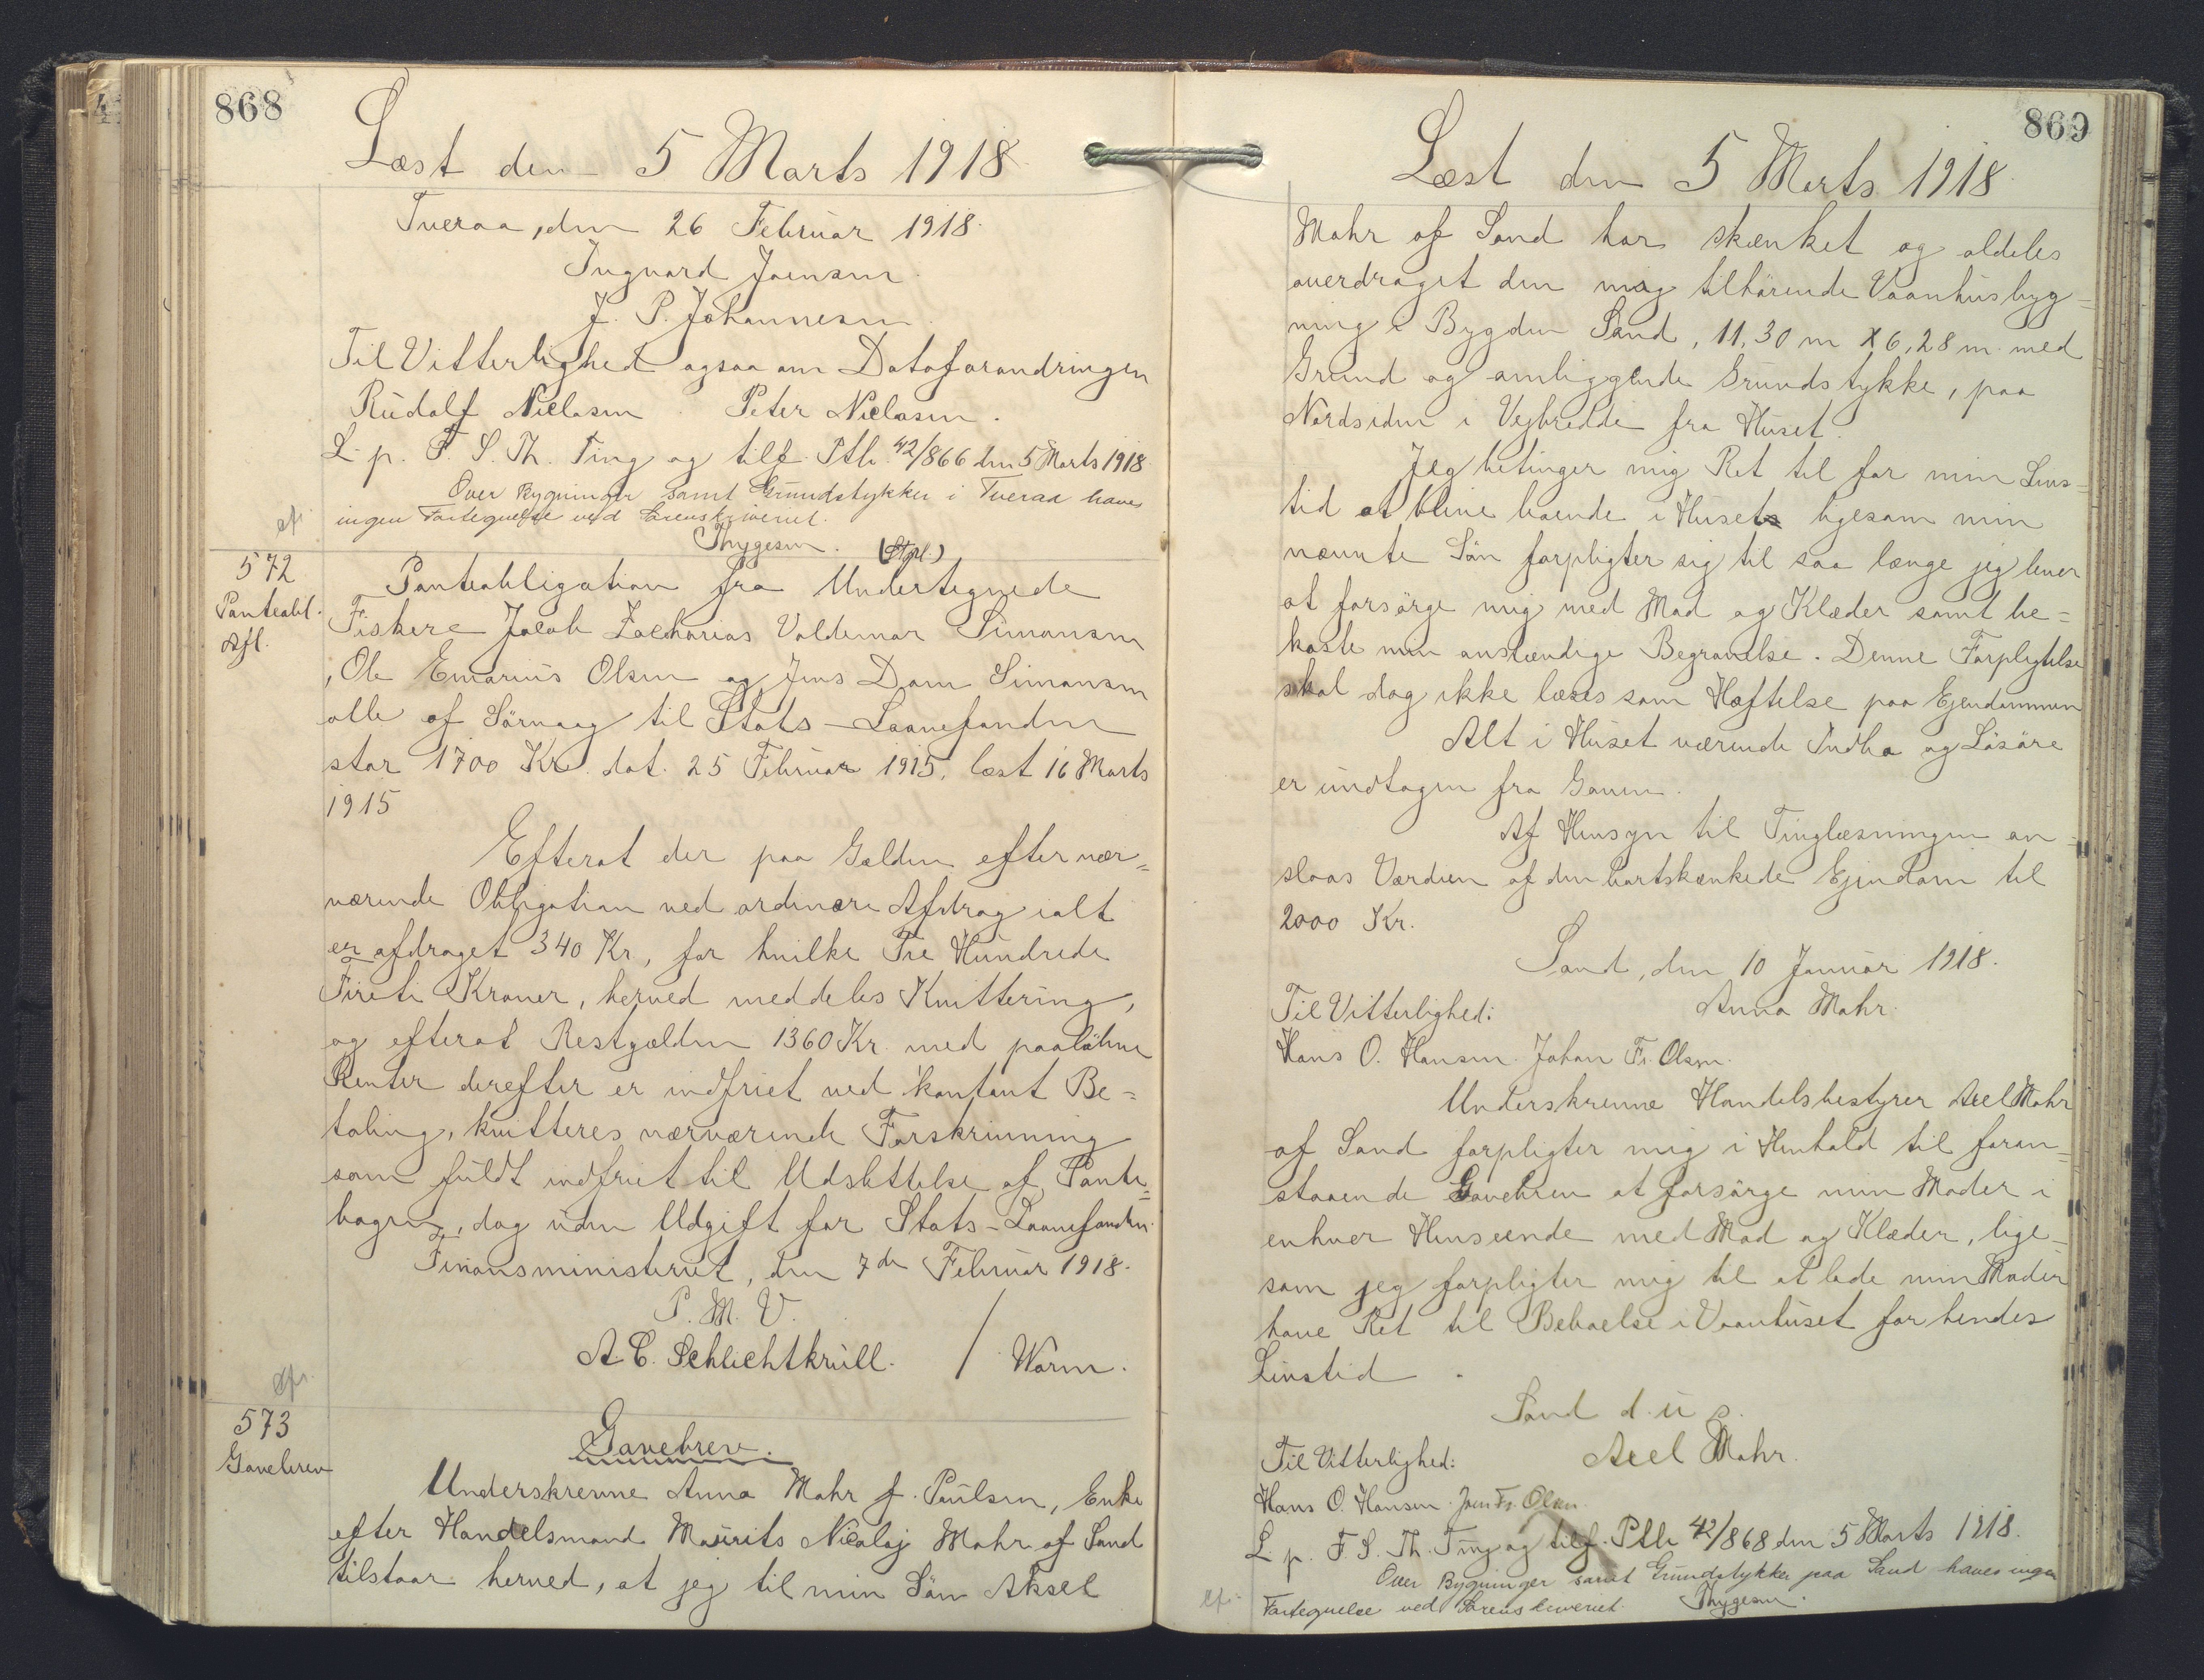 868
Læst den 5 Marts 1918
Tveraa, den 26 Februar 1918.
Ingvard Joensen.
J. P. Johannesen.
Til Vitterlighed ogsaa om Datoforandringen
Rudolf Niclasen. Peter Niclasen.
L. p. F. S. Th. Ting og tilf. Ptb. 42/866 den 5 Marts 1918
Over Bygninger samt Grundstykker i Tveraa haves
ingen Fortegnelse ved Sorenskriveriet.
Thygesen. (Stpl.)
cf.
572
Panteobl.
Afl.
Panteobligation fra Undertegnede
Fiskere Jacob Zacharias Valdemar Simonsen
, Ole Emarius Olsen og Jens Dam Simonsen
alle af Sörvaag til Stats-Laanefonden
stor 1700 Kr. dat. 25 Februar 1915, læst 16 Marts
1915
Efterat der paa Gælden efter nær=
værende Obligation ved ordinære Afdrag ialt
er afdraget 340 Kr, for hvilke Tre Hundrede
Fireti Kroner, herved meddeles Kvittering,
og efterat Restgælden 1360 Kr. med paaløbne
Renter derefter er indfriet ved kontant Be=
taling, kvitteres nærværende Forskrivning
som fuldt indfriet til Udslettelse af Pante=
bogen, dog uden Udgift for Stats-Laanefonden.
Finansministeriet, den 7de Februar 1918.
P. M. V.
A. C. Schlichtkrull. / Worm.
cfr.
573
Gavebrev
Gavebrev.
Underskrevne Anna Mohr f. Poulsen, Enke
efter Handelsmand Mourits Nicolaj Mohr af Sand
tilstaar herved, at jeg til min Sön Aksel
869
Læst den 5 Marts 1918.
Mohr af Sand har skænket og aldeles
overdraget den mig tilhörende Vaanhusbyg=
ning i Bygden Sand, 11,30 m x 6,28 m. med
Grund og omliggende Grundstykke, paa
Nordsiden i Vejbredde fra Huset.
Jeg betinger mig Ret til for min Livs=
tid at blive boende i Huset ligesom min
nævnte Sön forpligter sig til saa længe jeg lever
at forsörge mig med Mad og Klæder samt be=
koste min anstændige Begravelse. Denne Forpligtelse
skal dog ikke læses som Hæftelse paa Ejendommen
Alt i Huset værende Indbo og Lösöre
er undtagen fra Gaven.
Af Hensyn til Tinglæsningen an=
slaas Værdien af den bortskænkede Ejendom til
2000 Kr.
Sand, den 10 Januar 1918.
Til Vitterlighed: Anna Mohr.
Hans O. Hansen. Johan Fr. Olsen.
Underskrevne Handelsbestyrer Axel Mohr
af Sand forpligter mig i Henhold til foran=
staaende Gavebrev at forsörge min Moder i
enhver Henseende med Mad og Klæder, lige=
som jeg forpligter mig til at lade min Moder
have Ret til Beboelse i Vaanhuset for hendes
Livstid.
Sand d. u. s.
Til Vitterlighed: Axel Mohr.
Hans O. Hansen. Joen Fr. Olsen.
L. p. F. S. Th. Ting og tilf. Ptb 42/868 den 5 Marts 1918.
Over Bygninger samt Grundstykker paa Sand haves ingen
cf. Fortegnelse ved Sorenskriveriet. Thygesen.